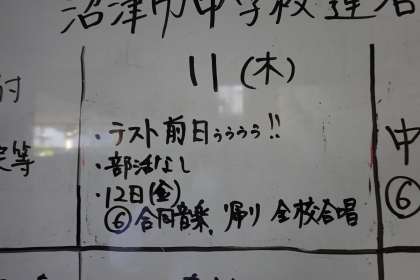 沼津市中学校連合
11 (木)
・テスト前日ぅぅぅぅ!!
・部活なし
・12日(金)
⑥ 合同音楽、帰り 全校合唱
討
等
中
⑥